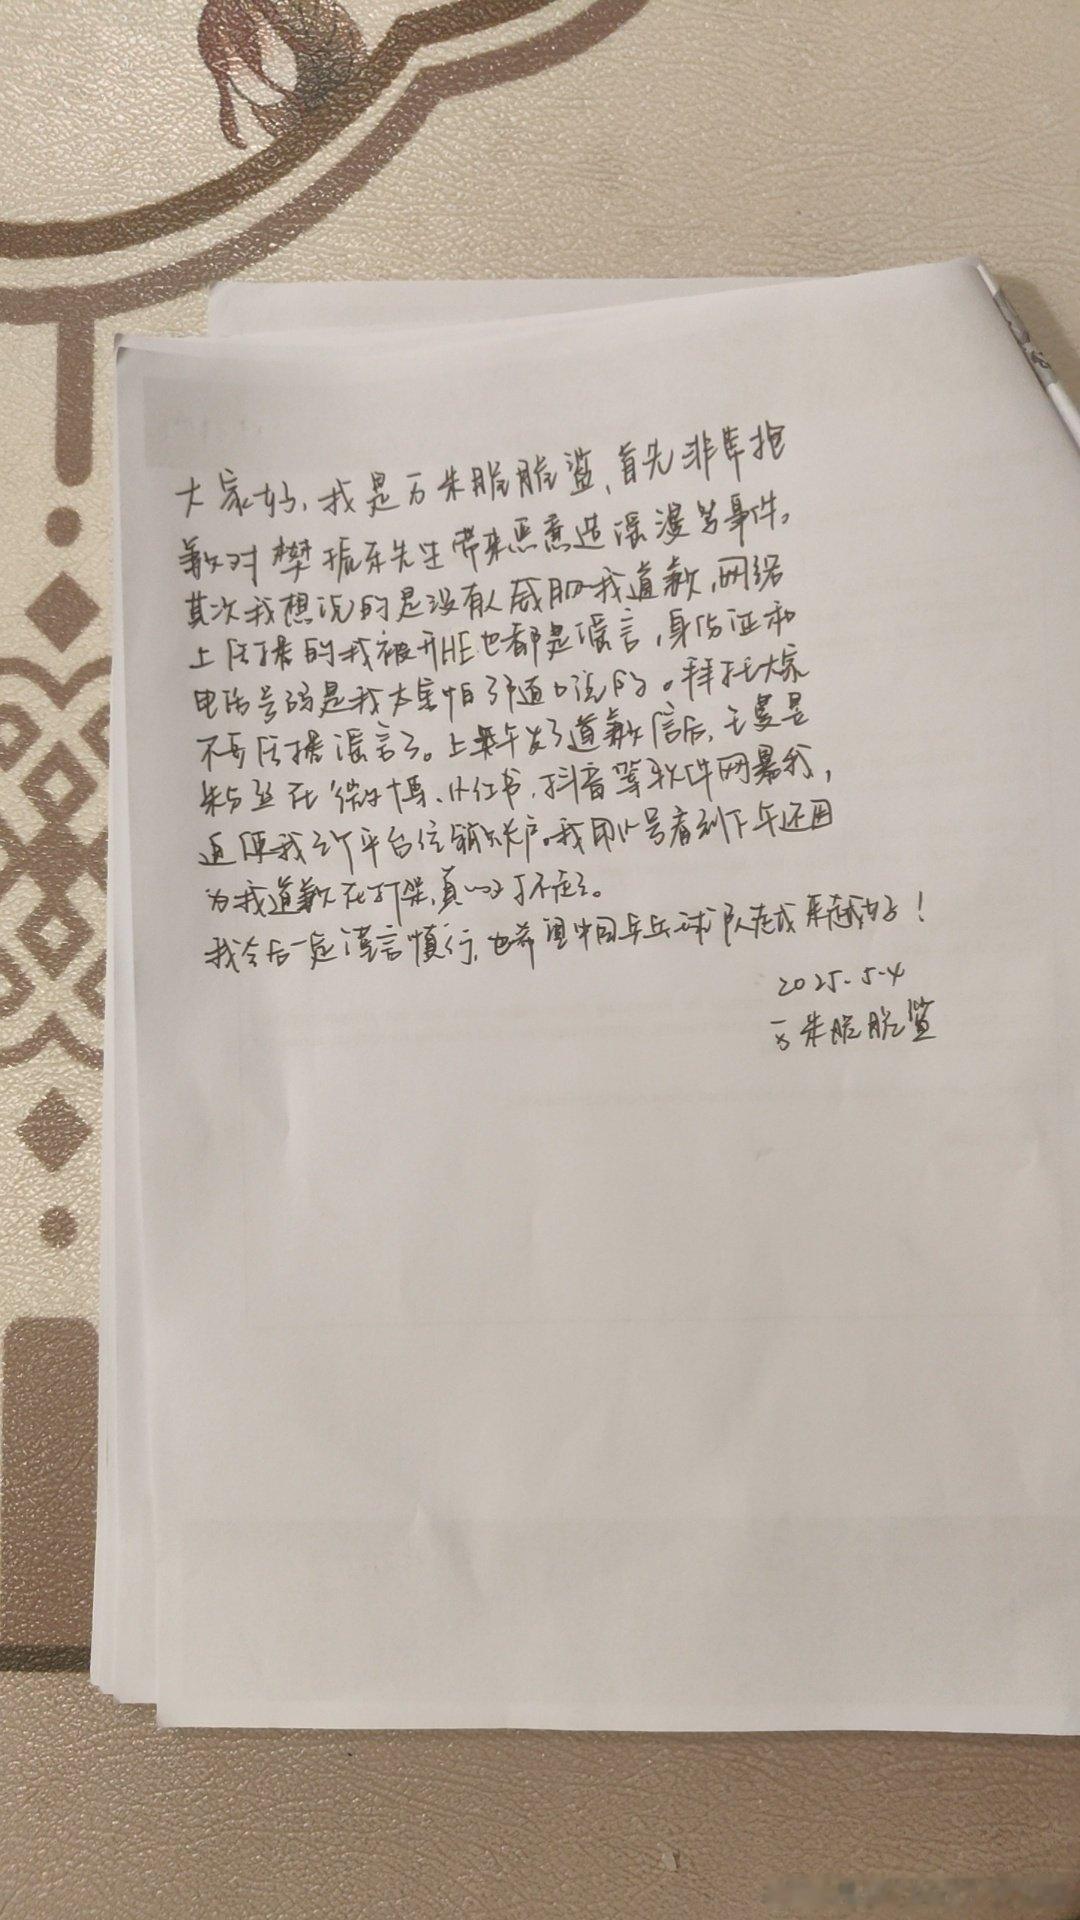 大家好，我是万朱脆脆鲨，首先非常抱
歉对樊振东先生带来恶意造谣漫骂事件。
其次我想说的是没有人威胁我道歉，网络
上传播的我被开HE也都是谣言，身份证和
电话号码是我太害怕了乱说的。拜托大家
不要传播谣言了。上午发了道歉信后，王曼昱
粉丝在微博、小红书、抖音等软件网暴我，
逼迫我各个平台注销账户。我用小号看到下午还因
为我道歉在打架，真的了不起了。
我今后一定谨言慎行，也希望中国乒乓球队越来越好！
2025.5.4
万朱脆脆鲨